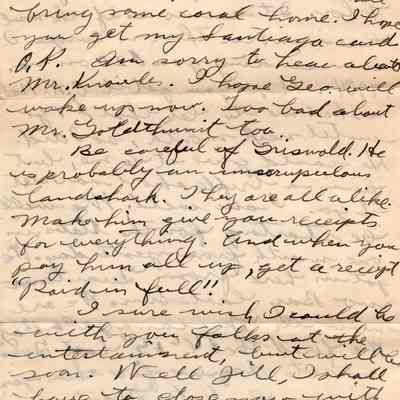 bring some coral home. I hope
you get my Santiago card
O.K. Am sorry to hear about
Mr. Knowles. I hope Geo. will
wake up now. Too bad about
Mr. Goldthwait too.
Be careful of Griswold. He
is probably an unscrupulous
landshark. They are all alike.
Make him give you receipts
for everything. And when you
pay him all up, get a receipt
"Paid in full"!
I sure wish I could be
with you folks at the
entertainment, but will be
soon. Well Jill, I shall
have to close now with